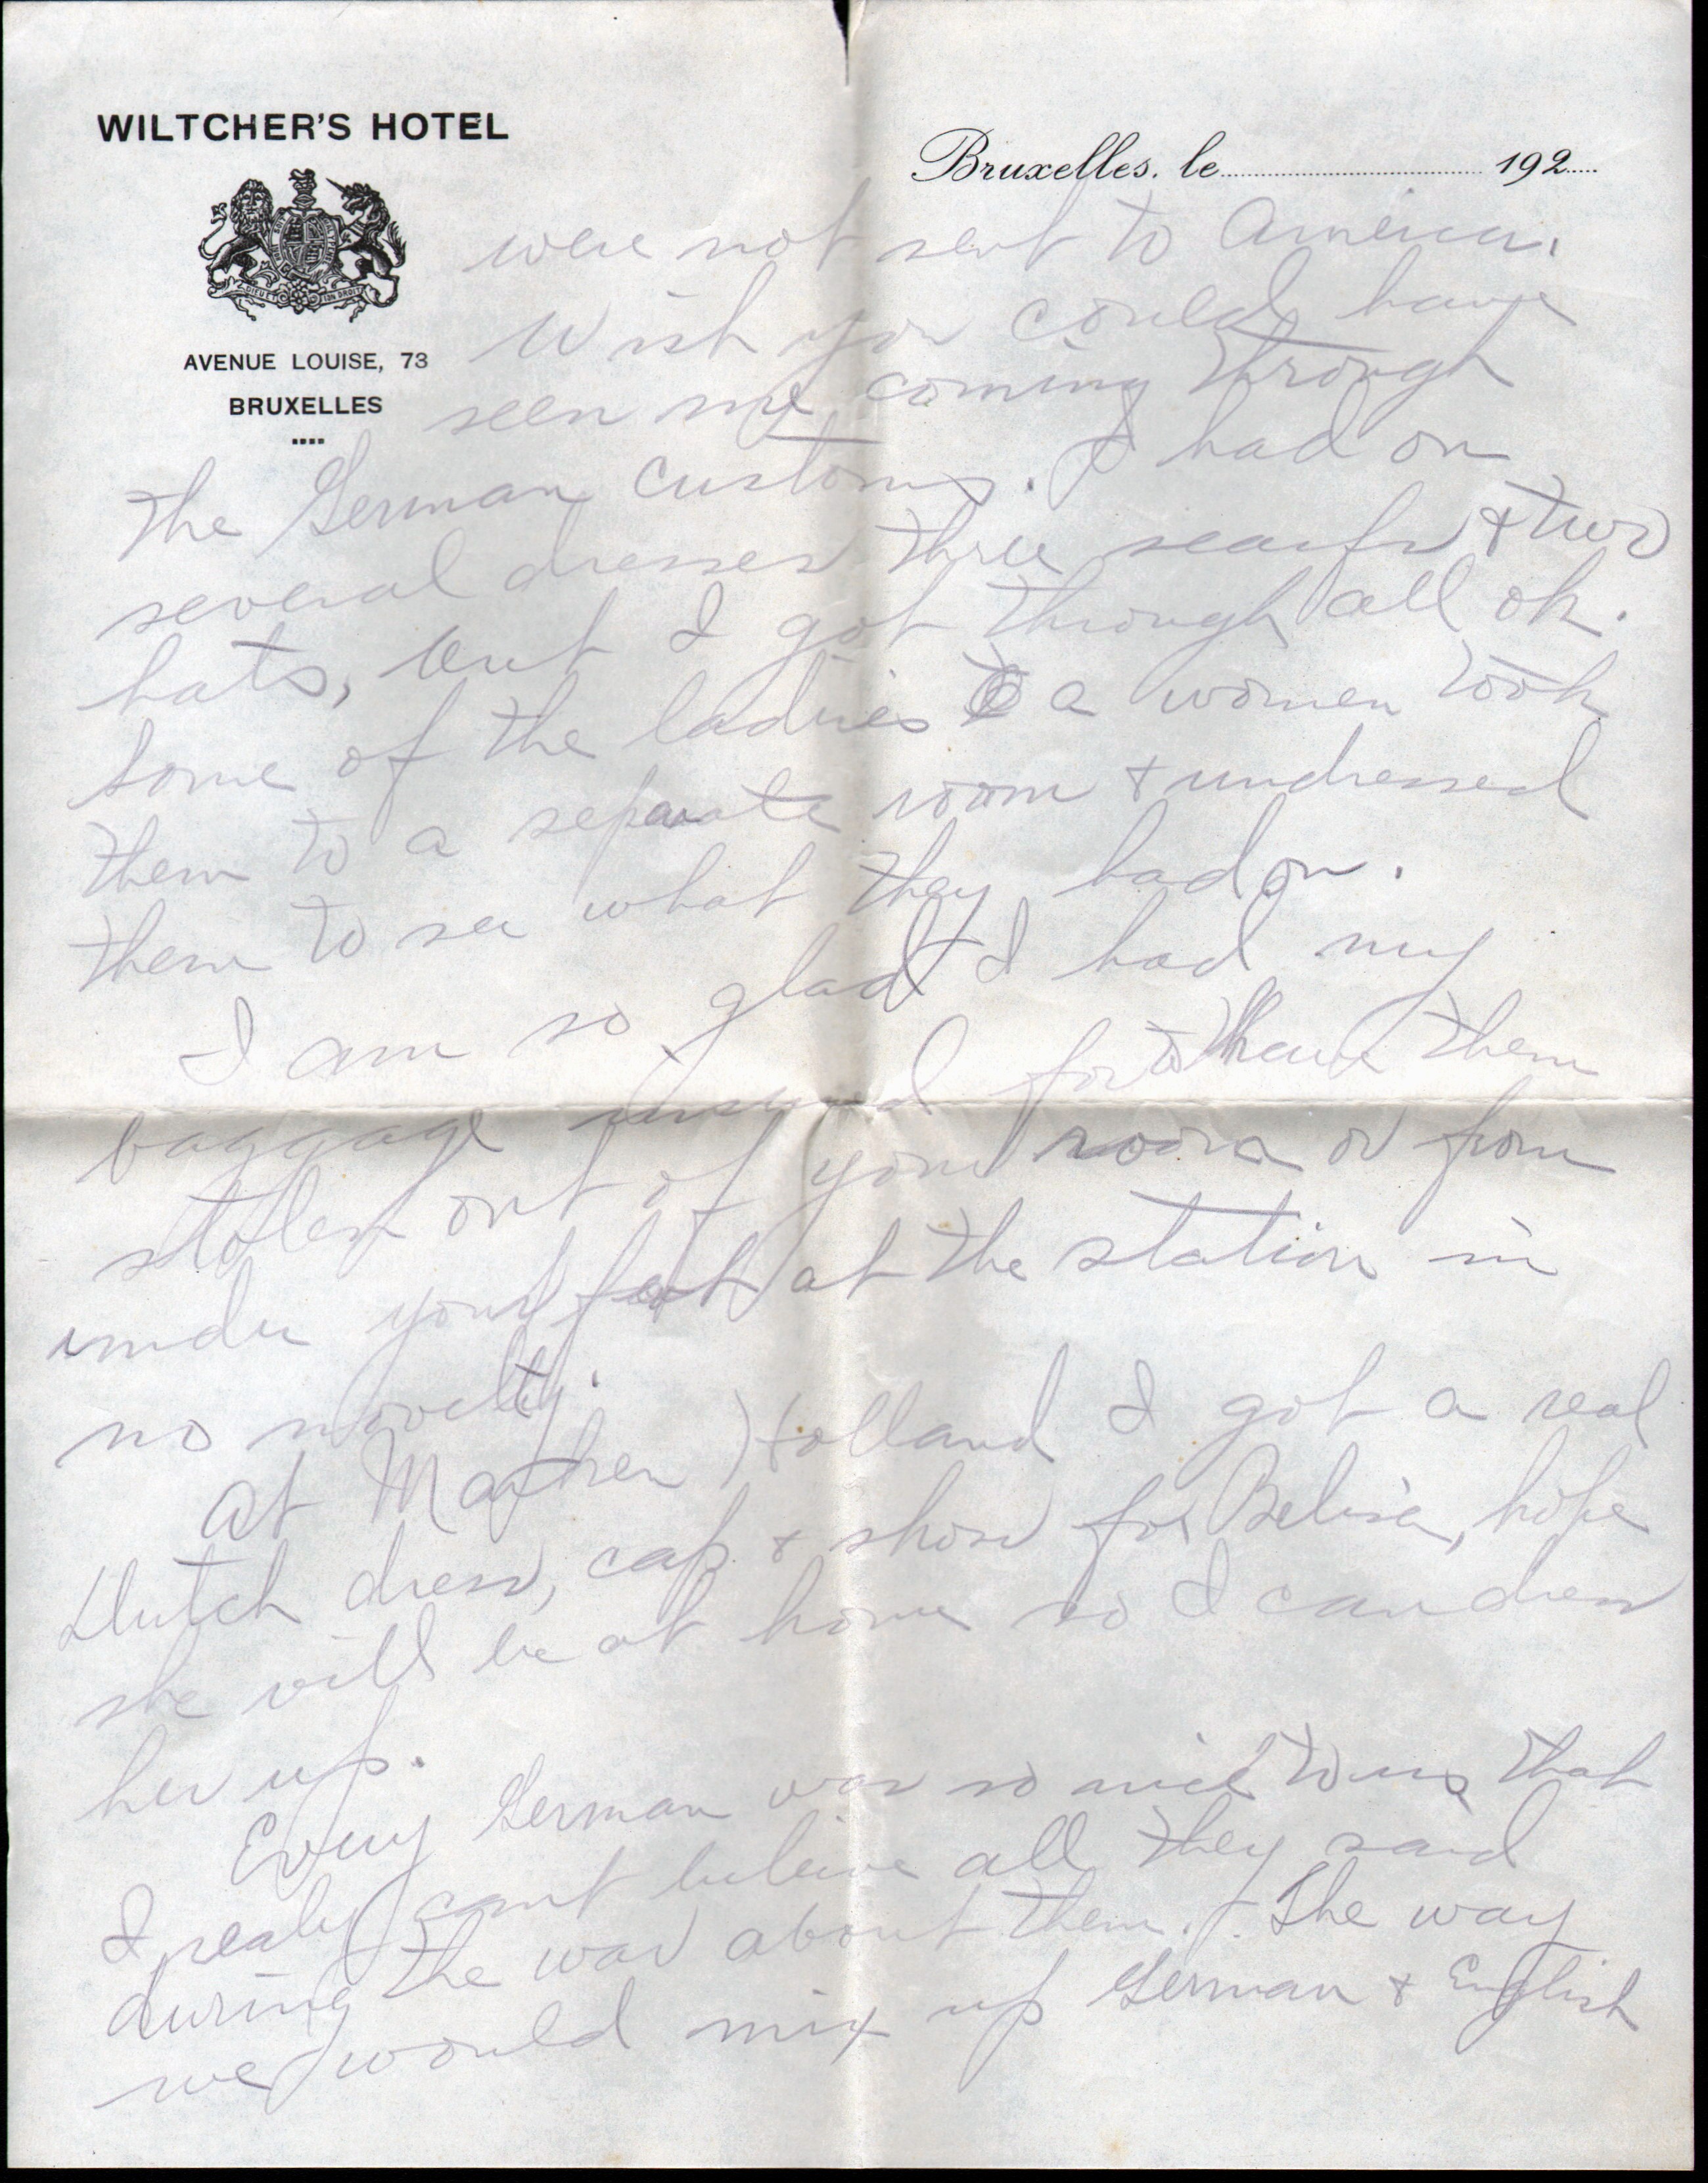 WILTCHER'S HOTEL
DIEU ET MON DROIT
AVENUE LOUISE, 73
BRUXELLES
Bruxelles, le 192
were not sent to America.
Wish you could have
seen me coming through
the German customs. I had on
several dresses three scarfs & two
hats, but I got through all ok.
Some of the ladies a women took
them to a separate room & undressed
them to see what they had on.
I am so glad I had my
baggage insured for to have them
stolen out of your room or from
under your feet at the station in
no novelty.
At Marken Holland I got a real
Dutch dress, cap & shoes for, hope
she will be at home so I can dress
her up.
Every German was so nice to us that
I realy cant beleive all they said
during the war about them. The way
we would mix up German & English